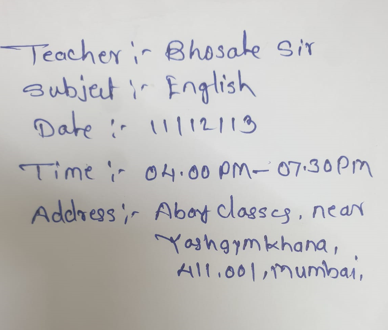 Teacher :- Bhosale Sir
Subject :- English
Date :- 11/12/13
Time :- 04.00 PM - 07.30 PM
Address :- Abay Classes, near
Yashgymkhana,
411.001, Mumbai.